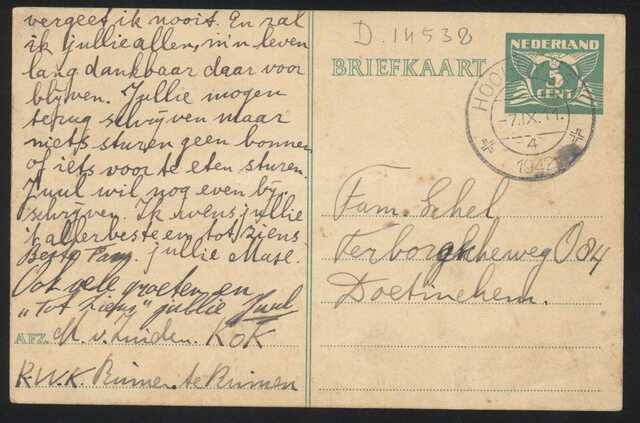 vergeet ik nooit. En zal
ik jullie allen, m'n leven
lang dankbaar daar voor
blijven. Jullie mogen
terug schrijven maar
niets sturen geen bonnen
of iets voor te eten sturen.
Juul wil nog even bij
schrijven. Ik wens jullie
't allerbeste en tot ziens
Beste Fam. jullie Max.
Ook vele groeten en
"Tot ziens" jullie Juul
AFZ. M. v. KOK
R.W.K. te Rumen
D.14538
BRIEFKAART
NEDERLAND
5
CENT
-7.IX.
-4
1942
Fam. Schel
Terborgscheweg O84
Doetinchem.